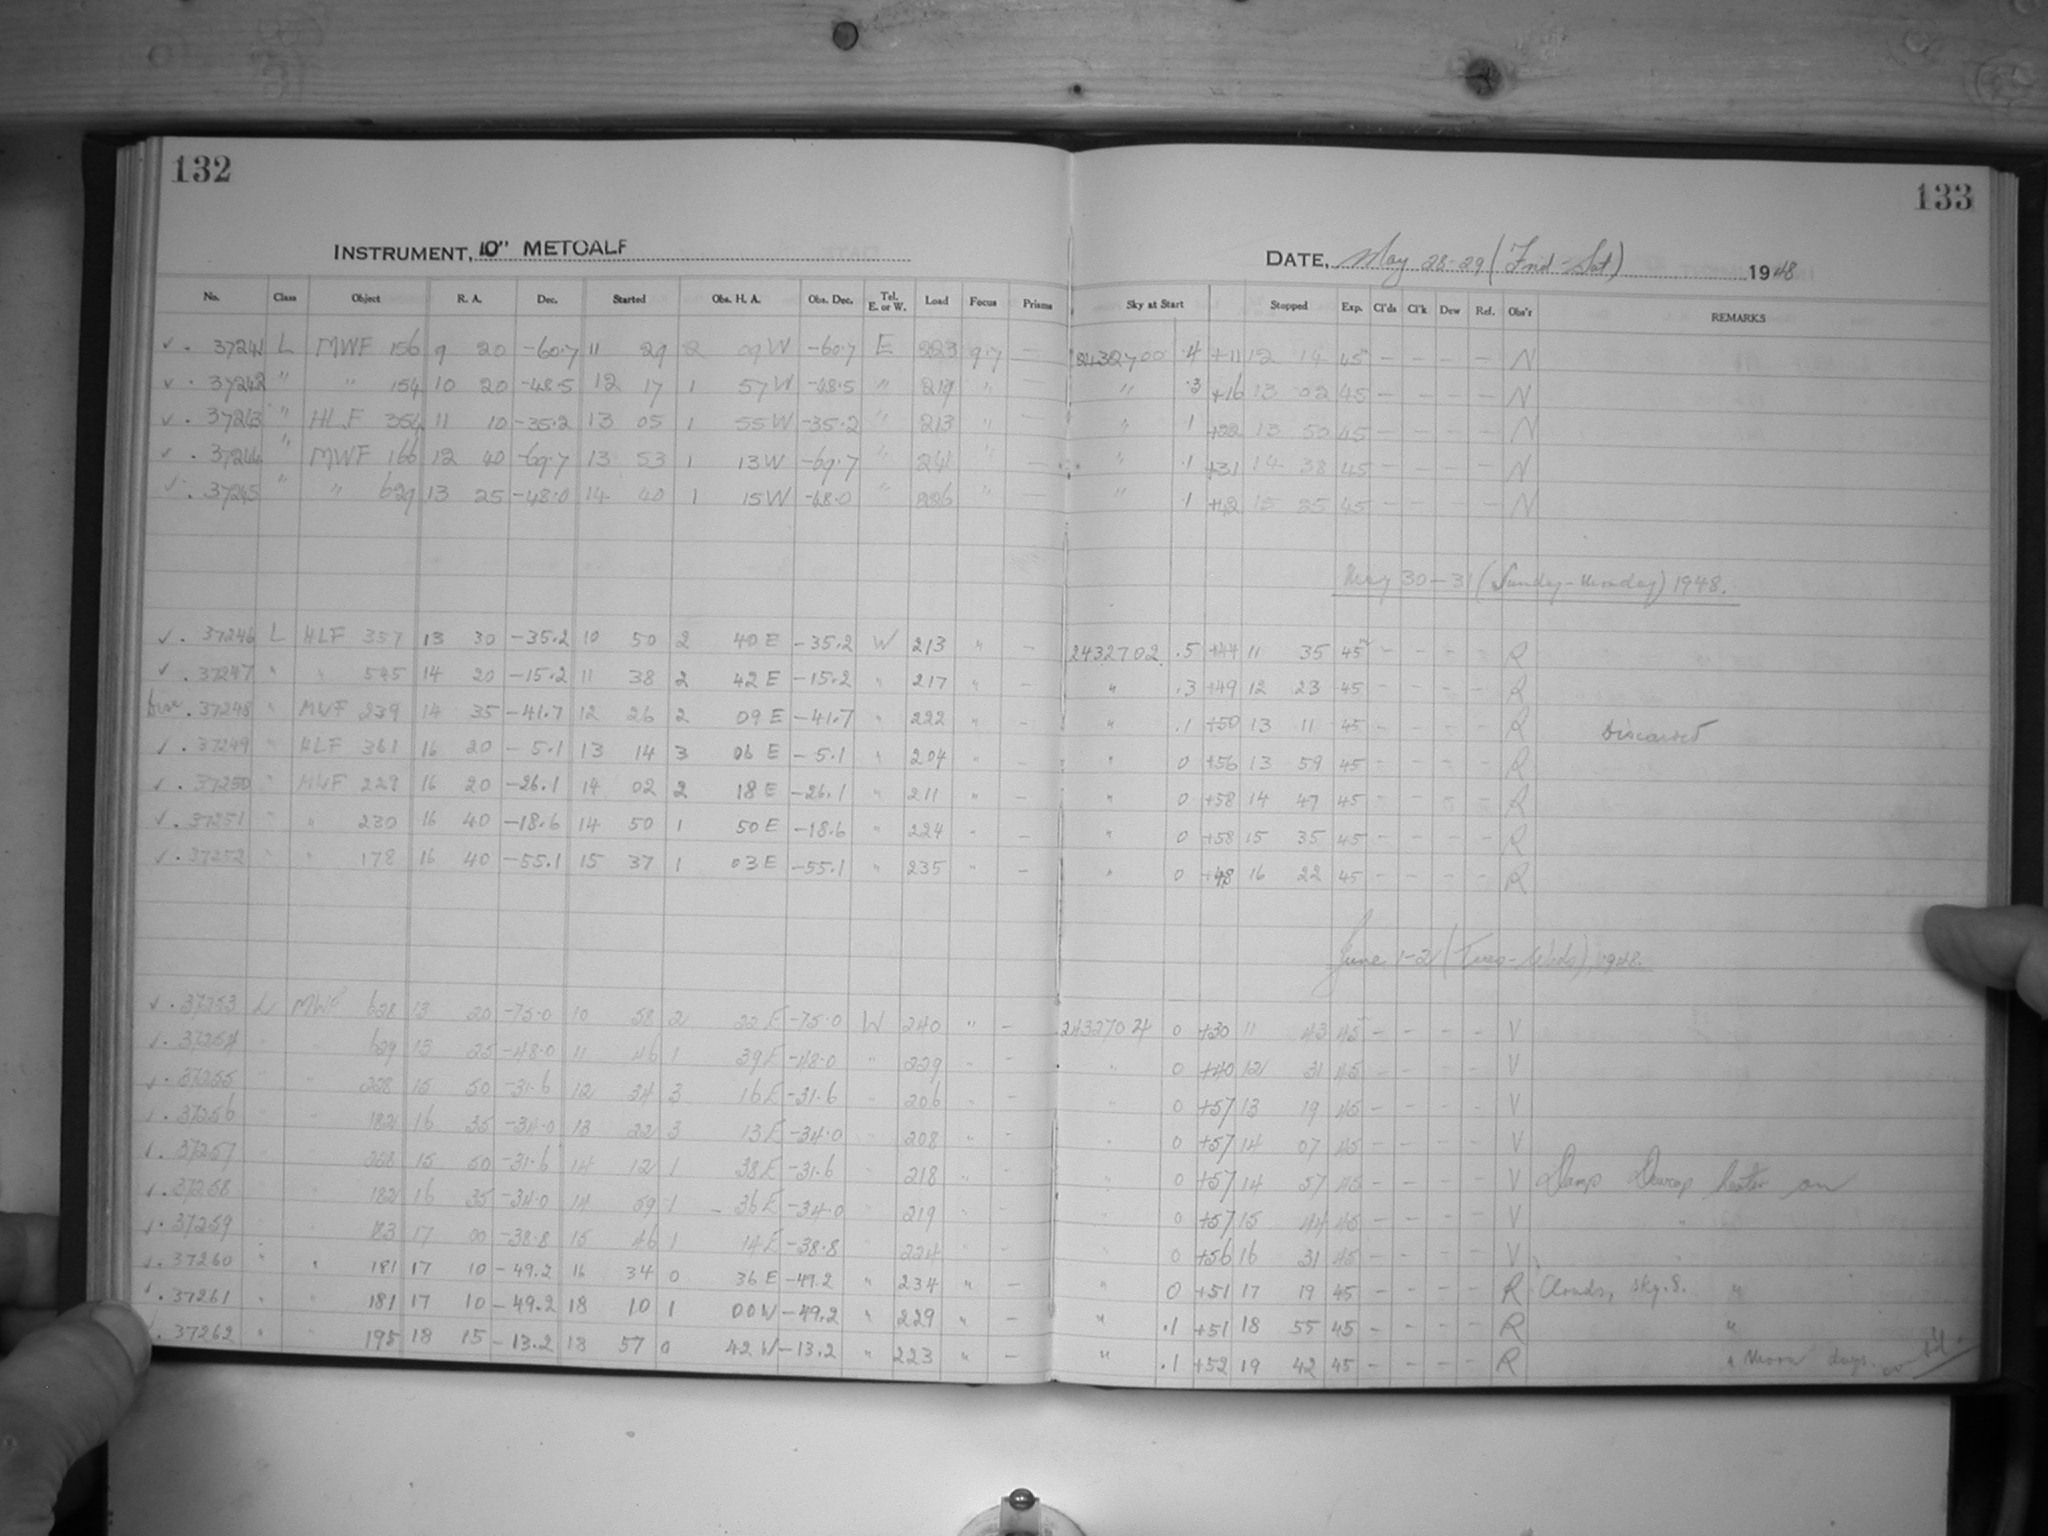 132
133
INSTRUMENT, 10" METCALF
DATE, May 28-29 (Frid-Sat) 1948
No. Class Object R. A. Dec. Started Obs. H. A. Obs. Dec. Tel. E. or W. Load Focus Prisms Sky at Start Stopped Exp. Cl'ds Cl'k Dew Ref. Obs'r REMARKS
✓ . 37241 L MWF 156 9 20 -60.7 11 29 2 09 W -60.7 E 223 9.7 — 2432700 .4 +11 12 14 45 — — — — N
✓ . 37242 " " 154 10 20 -48.5 12 17 1 57 W -48.5 " 219 " — " .3 +16 13 02 45 — — — — N
✓ . 37243 " HLF 354 11 10 -35.2 13 05 1 55 W -35.2 " 213 " — " .1 +22 13 50 45 — — — — N
✓ . 37244 " MWF 166 12 40 -69.7 13 53 1 13 W -69.7 " 241 " — " .1 +31 14 38 45 — — — — N
✓ . 37245 " " 629 13 25 -48.0 14 40 1 15 W -48.0 " 226 " — " .1 +42 15 25 45 — — — — N
May 30-31 (Sunday-Monday) 1948.
✓ . 37246 L HLF 357 13 30 -35.2 10 50 2 40 E -35.2 W 213 " — 2432702 .5 +44 11 35 45 - - - - R
✓ . 37247 " " 545 14 20 -15.2 11 38 2 42 E -15.2 " 217 " — " .3 +49 12 23 45 - - - - R
Disc . 37248 " MWF 239 14 35 -41.7 12 26 2 09 E -41.7 " 222 " — " .1 +50 13 11 45 - - - - R Discarded
✓ . 37249 " HLF 361 16 20 -5.1 13 14 3 06 E -5.1 " 204 " — " 0 +56 13 59 45 - - - - R
✓ . 37250 " MWF 229 16 20 -26.1 14 02 2 18 E -26.1 " 211 " — " 0 +58 14 47 45 - - - - R
✓ . 37251 " " 230 16 40 -18.6 14 50 1 50 E -18.6 " 224 " — " 0 +58 15 35 45 - - - - R
✓ . 37252 " " 178 16 40 -55.1 15 37 1 03 E -55.1 " 235 " — " 0 +48 16 22 45 - - - - R
June 1-2 (Tues-Weds), 1948.
✓ . 37253 L MWF 628 13 20 -75.0 10 58 2 22 E -75.0 W 240 " — 2432704 0 +30 11 43 45 - - - - V
✓ . 37254 " " 629 13 25 -48.0 11 46 1 39 E -48.0 " 229 " - " 0 +40 12 31 45 - - - - V
✓ . 37255 " " 228 15 50 -31.6 12 34 3 16 E -31.6 " 206 " - " 0 +57 13 19 45 - - - - V
✓ . 37256 " " 182 16 35 -34.0 13 22 3 13 E -34.0 " 208 " - " 0 +57 14 07 45 - - - - V
✓ . 37257 " " 228 15 50 -31.6 14 12 1 38 E -31.6 " 218 " - " 0 +57 14 57 45 - - - - V Damp Dewcap heater on
✓ . 37258 " " 182 16 35 -34.0 14 59 1 36 E -34.0 " 219 " - " 0 +57 15 44 45 - - - - V "
✓ . 37259 " " 183 17 00 -38.8 15 46 1 14 E -38.8 " 224 " - " 0 +56 16 31 45 - - - - V "
✓ . 37260 " " 181 17 10 -49.2 16 34 0 36 E -49.2 " 234 " — " 0 +51 17 19 45 - - - - R Clouds, sky.S. "
✓ . 37261 " " 181 17 10 -49.2 18 10 1 00 W -49.2 " 229 " — " .1 +51 18 55 45 - - - - R "
✓ . 37262 " " 195 18 15 -13.2 18 57 0 42 W -13.2 " 223 " — " .1 +52 19 42 45 - - - - R " Moon